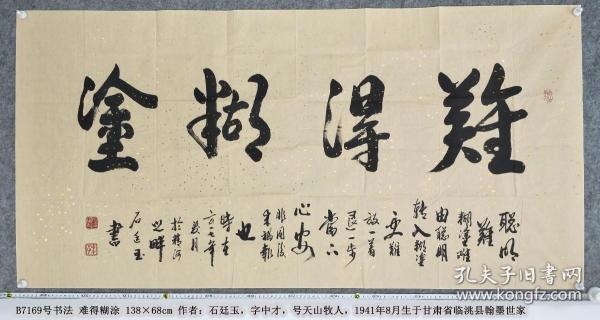 難得糊塗
聰明
難
糊塗難
由聰明
轉入糊塗
更難
放一着
退一步
當下
心安
非圖後
來福報
也
時在
二〇一七年
於洮河
之畔
石廷玉
書
B7169号书法 难得糊涂 138×68cm 作者：石廷玉，字中才，号天山牧人，1941年8月生于甘肃省临洮县翰墨世家
孔夫子旧书网